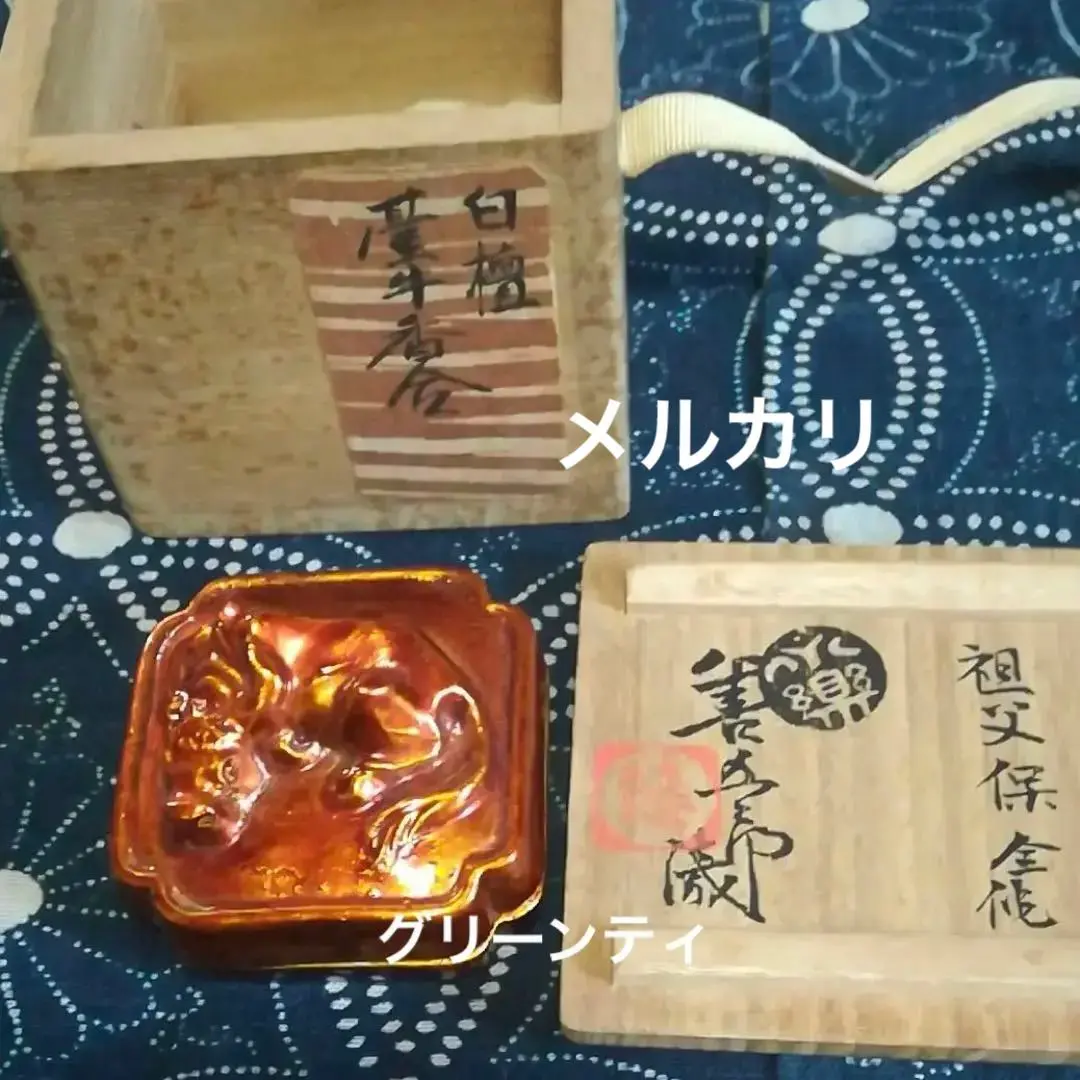 白檀
犀牛香合
メルカリ
祖父保全作
善五郎
グリーンティ